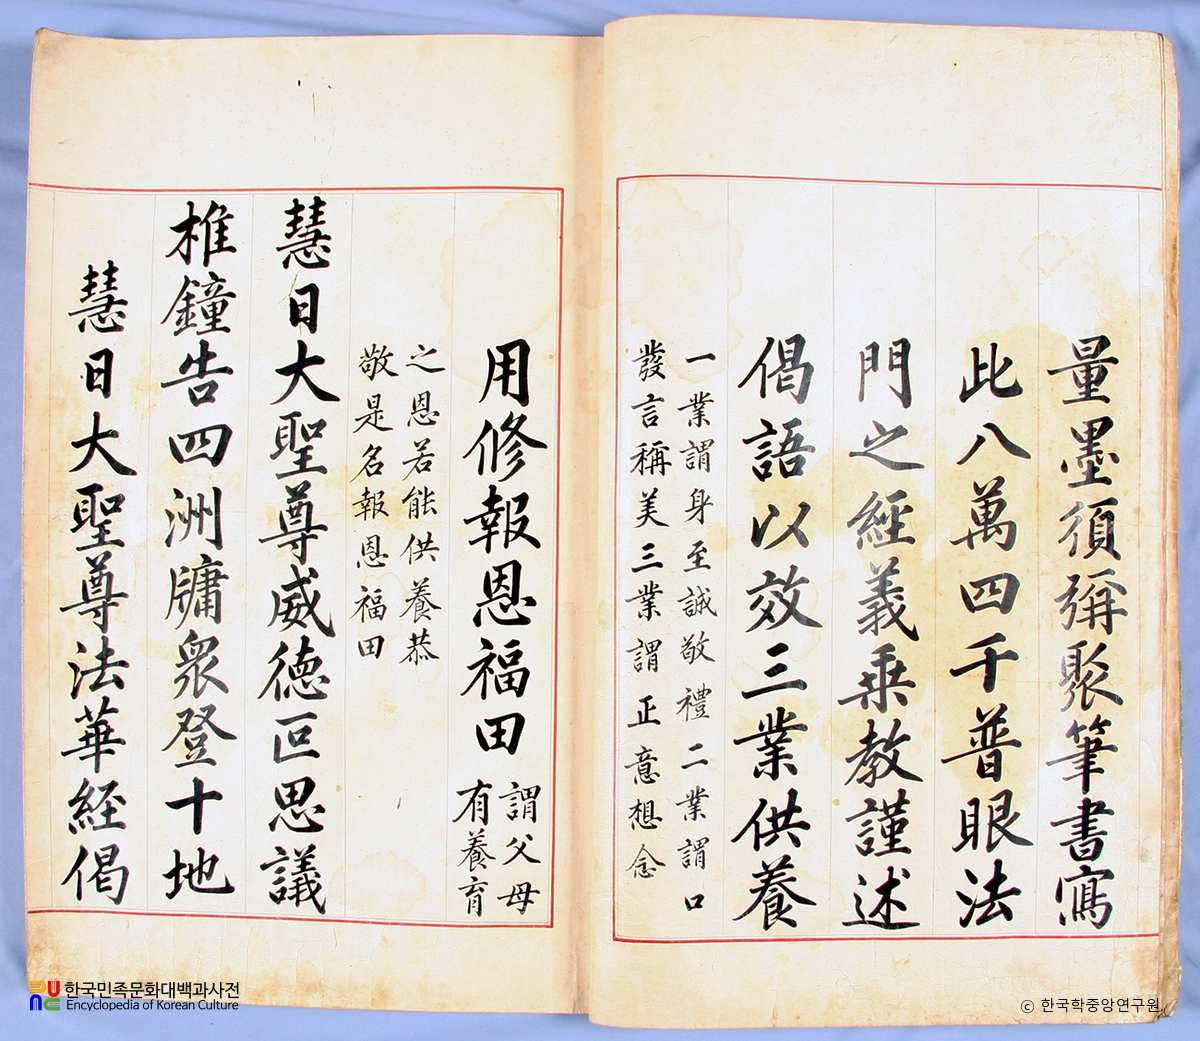 量墨須彌聚筆書寫
此八萬四千普眼法
門之經義乗教謹述
偈語以效三業供養
一業謂身至誠敬禮二業謂口
發言稱美三業謂正意想念
用修報恩福田
謂父母
有養育
之恩若能供養恭
敬是名報恩福田
慧日大聖尊威德叵思議
椎鐘告四洲牗衆登十地
慧日大聖尊法華経偈
한국민족문화대백과사전
Encyclopedia of Korean Culture
ⓒ 한국학중앙연구원